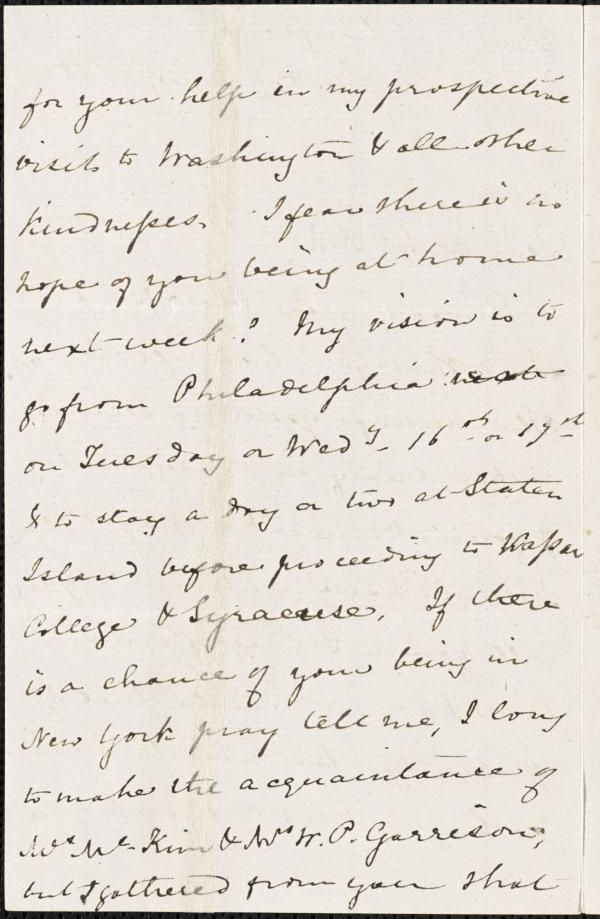 for your help in my prospective
visit to Washington & all other
kindnesses. I fear there is no
hope of your being at home
next week? My vision is to
go from Philadelphia
on Tuesday or Wedy. 16th or 17th
& to stay a day or two at Staten
Island before proceeding to Vassar
College & Syracuse. If there
is a chance of your being in
New York pray tell me, I long
to make the acquaintance of
Mrs. Mc.Kim & Mrs W. P. Garrison,
but I gathered from you that